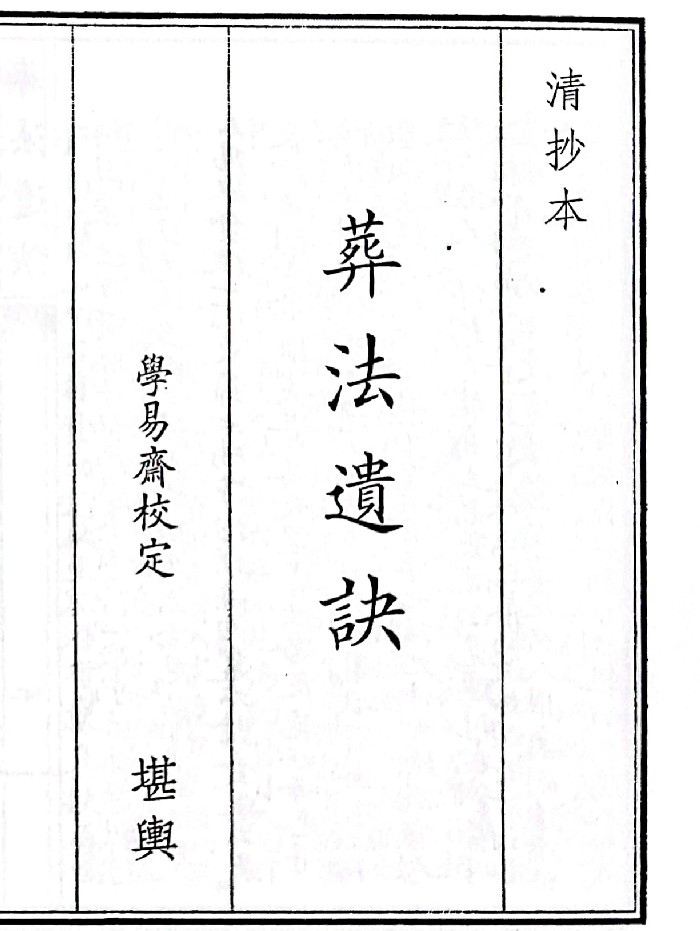 清抄本
葬法遺訣
學易齋校定
堪輿